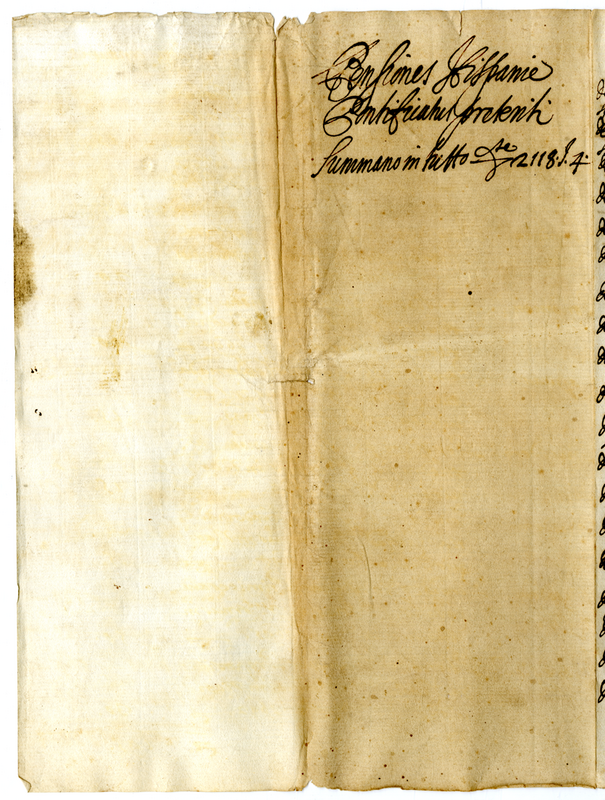 Pensiones Hispanie
Pontificatus preteriti
Summano in tutto 2118. 4